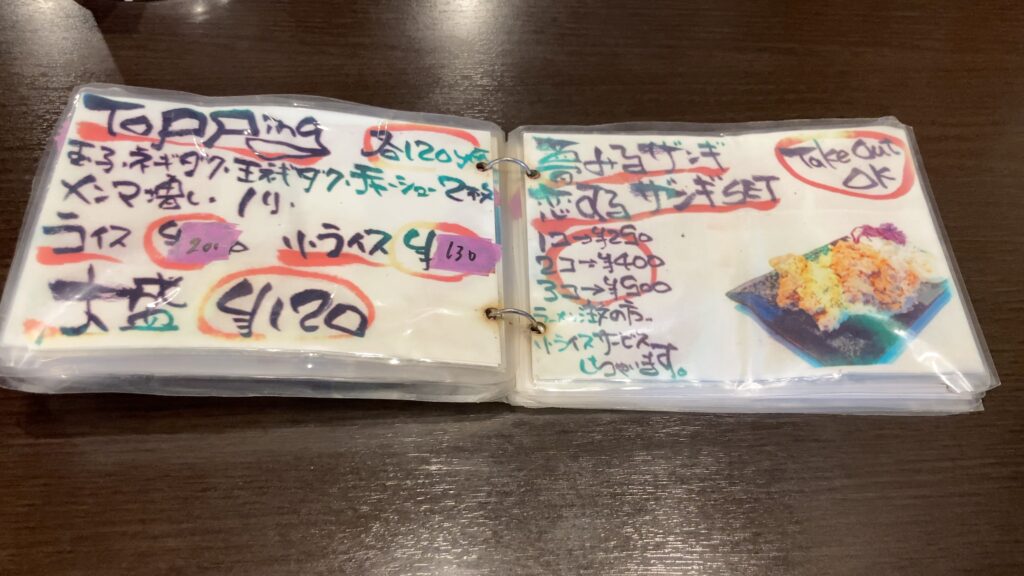 Topping 各120円
まふ、ネギダク、玉ネギダク、チャーシュー2枚
メンマ増し、ノリ、
ライス 200 小ライス 130
大盛 120
Take Out OK
ザンギ
ザンギSET
1コ→¥250
2コ→¥400
3コ→¥580
ラーメン注文の方
小ライスサービス
しちゃいます。